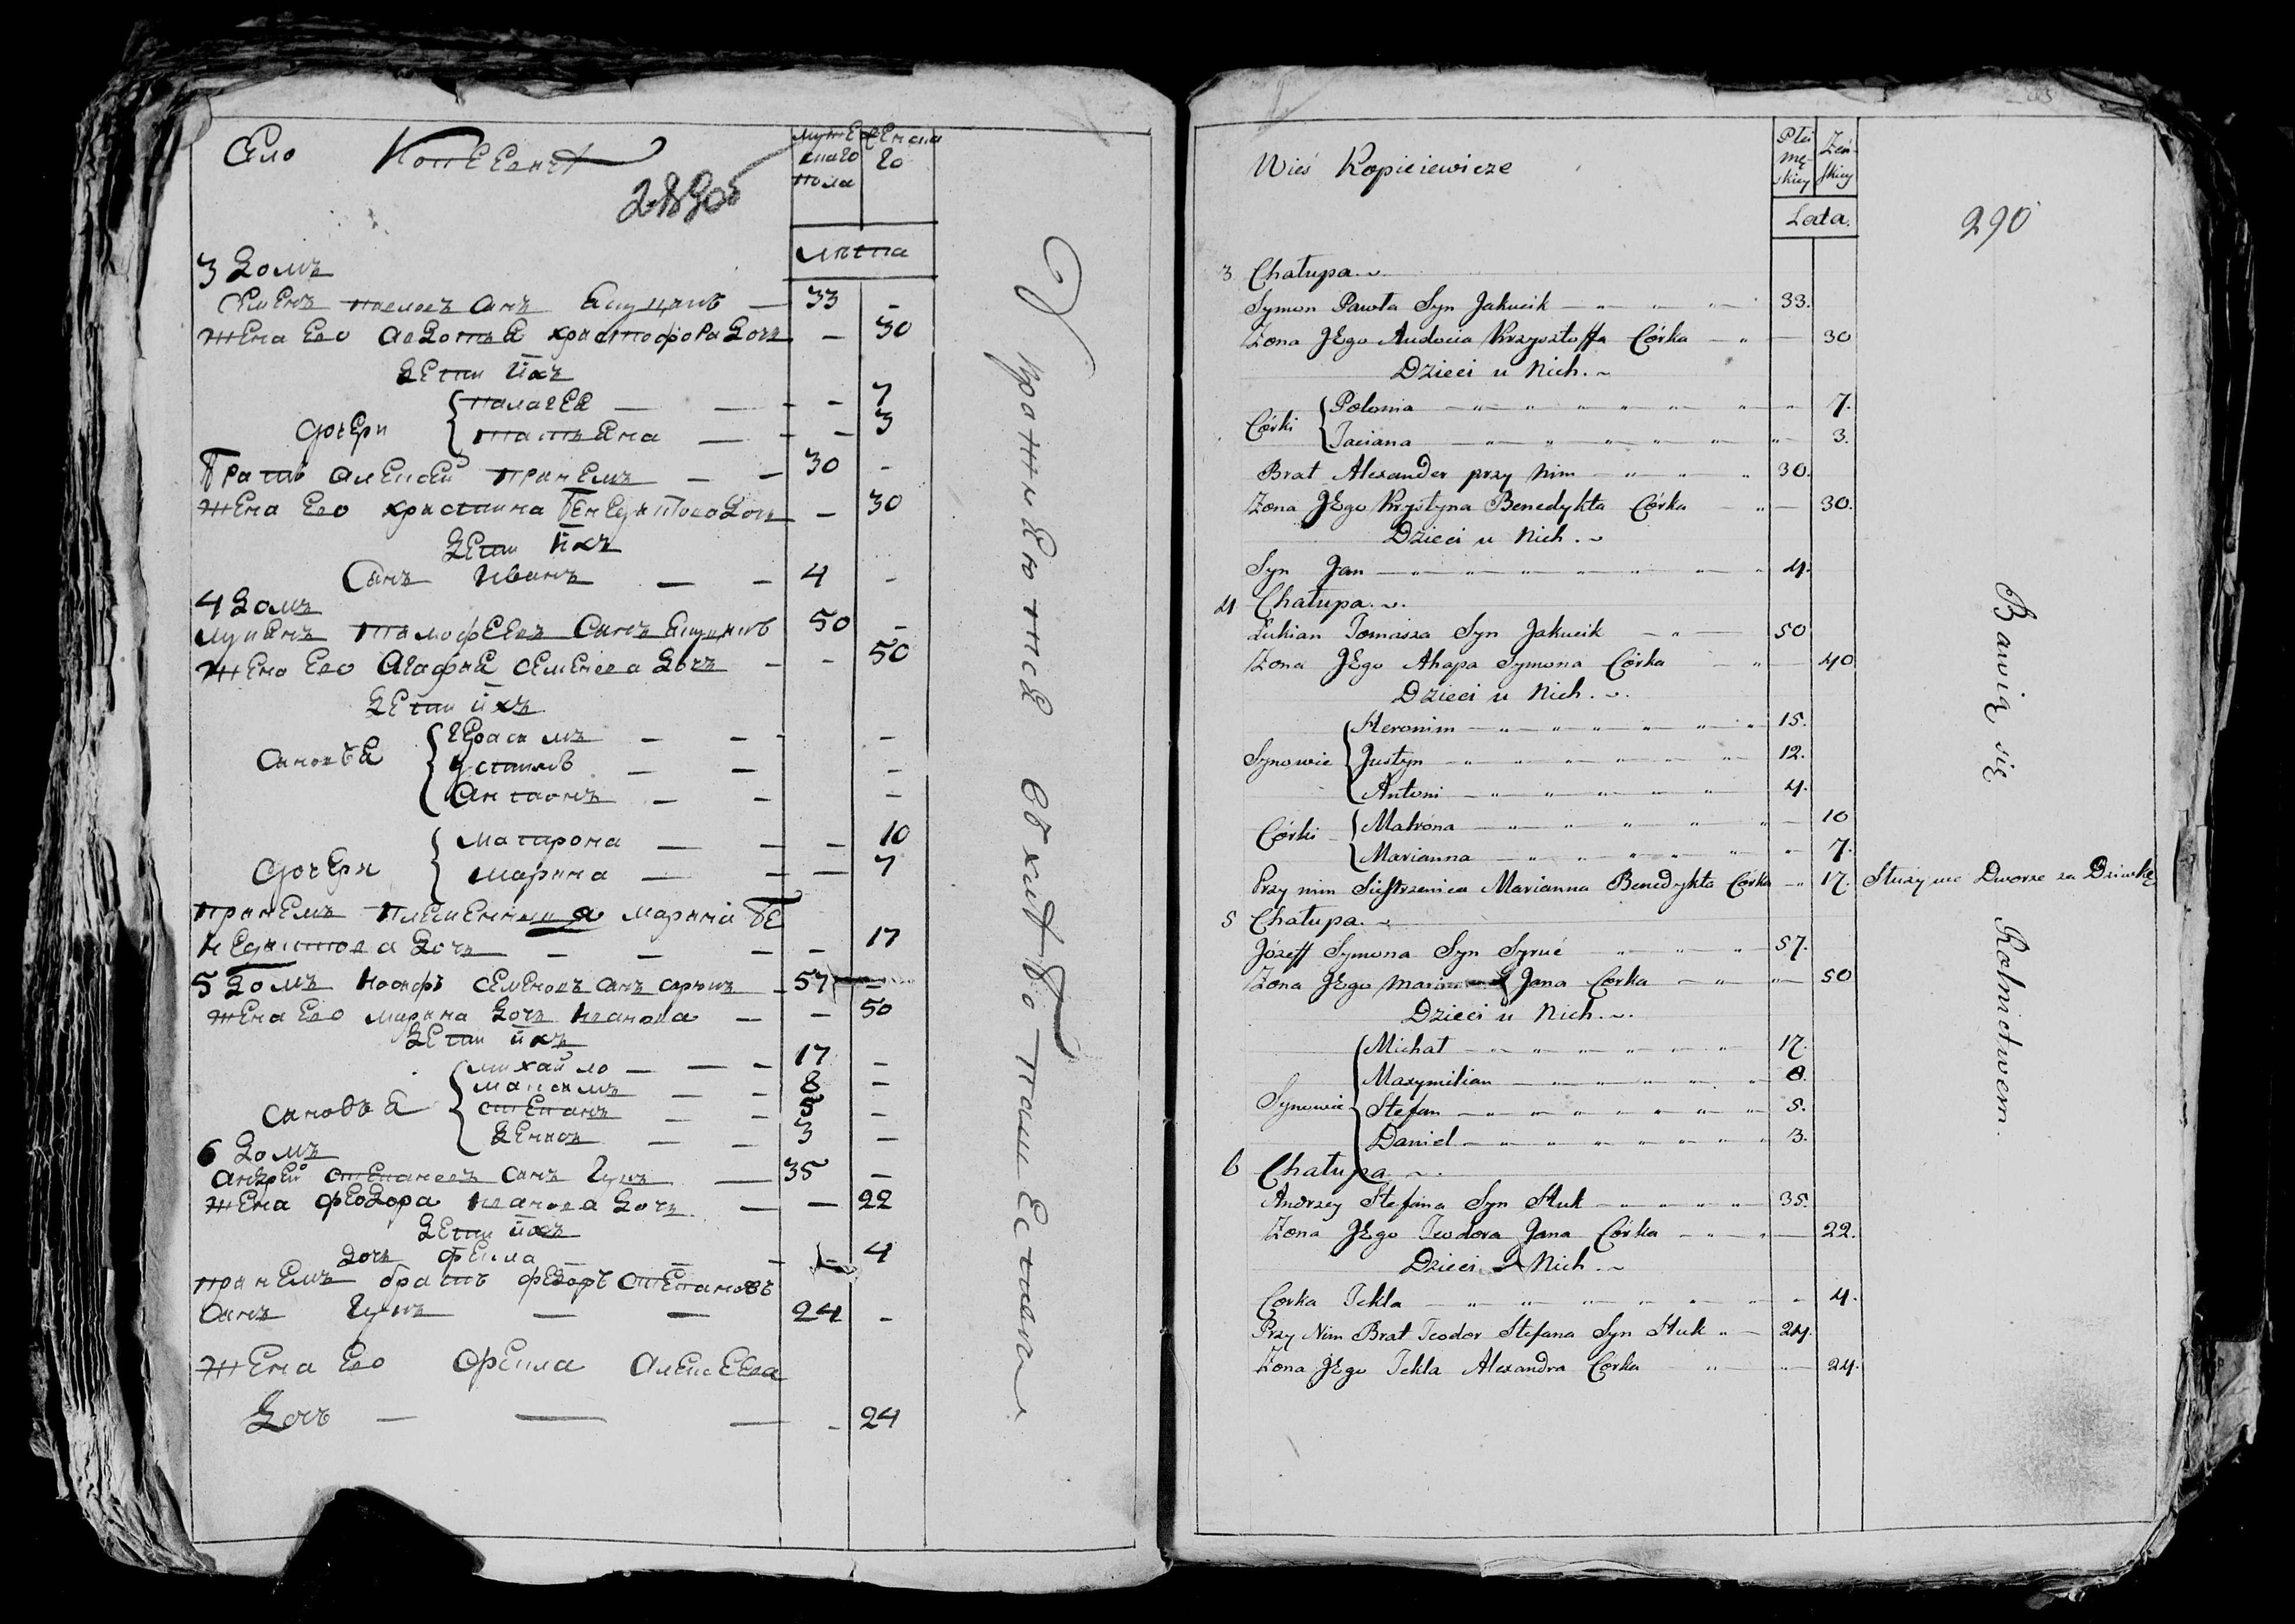 Село
289 об
мужескаго пола
женскаго
лета
3 домъ
Семенъ Павловъ сынъ Якуцикъ — 33 –
жена его Авдотья Христофора дочь – 30
дети ихъ
дочери Палагея — — – – 7
Татьяна — – – 3
братъ Алексей при немъ — – 30 –
жена его Христина дочь – 30
дети ихъ
Сынъ Иванъ — – 4 –
4 домъ
Лукянъ сынъ 50 –
жена его Агафия Семенова дочь – – 50
дети ихъ
сыновья Герасимъ — – –
Устинъ — – –
Антонъ — – –
дочери Матрона — – – 10
Марина — – — 7
при немъ племянница Марыя Бе
недиктова дочь – – – – 17
5 домъ Иосифъ Семеновъ сынъ – 57 –
жена его Марина дочь Иванова – – 50
дети ихъ
сыновья Михайло — — – 17 –
Максимъ — – 8 –
Степанъ — – 5 –
3 –
6 домъ
Андрей Степановъ сынъ Гукъ — 35 –
жена Феодора Иванова дочь — — 22
дети ихъ
дочь Фекла – – – 4
при немъ братъ Федоръ Степановъ
сынъ Гукъ — — 24 –
жена его Фекла Алексеева
дочь — — — – 24
Упражняются в хлебопашестве
Wieś Kopiciewicze
Płci męskiey
Żeńskiey
Lata.
290
3 Chałupa.
Symon Pawła Syn Jakucik 33.
Żona JEgo Audocia Krzysztoffa Córka 30
Dzieci u Nich.
Córki Polonia 7.
Taciana 3.
Brat Alexander przy Nim 30.
Żona JEgo Krystyna Benedykta Córka 30.
Dzieci u Nich.
Syn Jan 4.
4 Chałupa.
Łukian Tomasza Syn Jakucik 50
Żona JEgo Ahapa Symona Córka 40
Dzieci u Nich.
Synowie Heronim 15.
Justyn 12.
Antoni 4.
Córki Matrona 10
Marianna 7.
Przy nim Siestrzenica Marianna Benedykta Corka 17. Służy we Dworze za Dziewkę
5 Chałupa.
Józeff Symona Syn 57.
Żona JEgo Jana Corka 50
Dzieci u Nich.
Synowie Michał 17.
Maxymilian 8.
Stefan 5.
Daniel 3.
6 Chałupa.
Andrzey Stefana Syn Huk 35.
Żona JEgo Teodora Jana Córka 22.
Dzieci u Nich.
Corka Tekla 4.
Przy Nim Brat Teodor Stefana Syn Huk 24.
Żona JEgo Tekla Alexandra Corka 24.
Bawią się Rolnictwem.